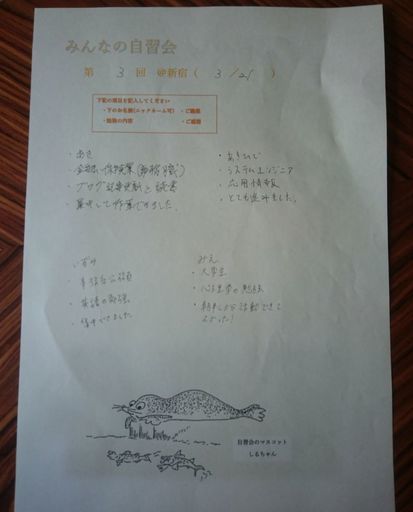 みんなの自習会
第 3 回 @新宿 ( 3 / 21 )
下記の項目を記入してください
・下のお名前(ニックネーム可) ・ご職業
・勉強の内容 ・ご感想
・あさ
・ブログ記事更新と読書
・集中して作業できました。
・あきひで
・システムエンジニア
・応用情報
・とても進みました。
いずみ
・英語の勉強
・集中できました
みえ
・大学生
・心理学の勉強
・朝早くから活動できて
よかった!
自習会のマスコット
しるちゃん